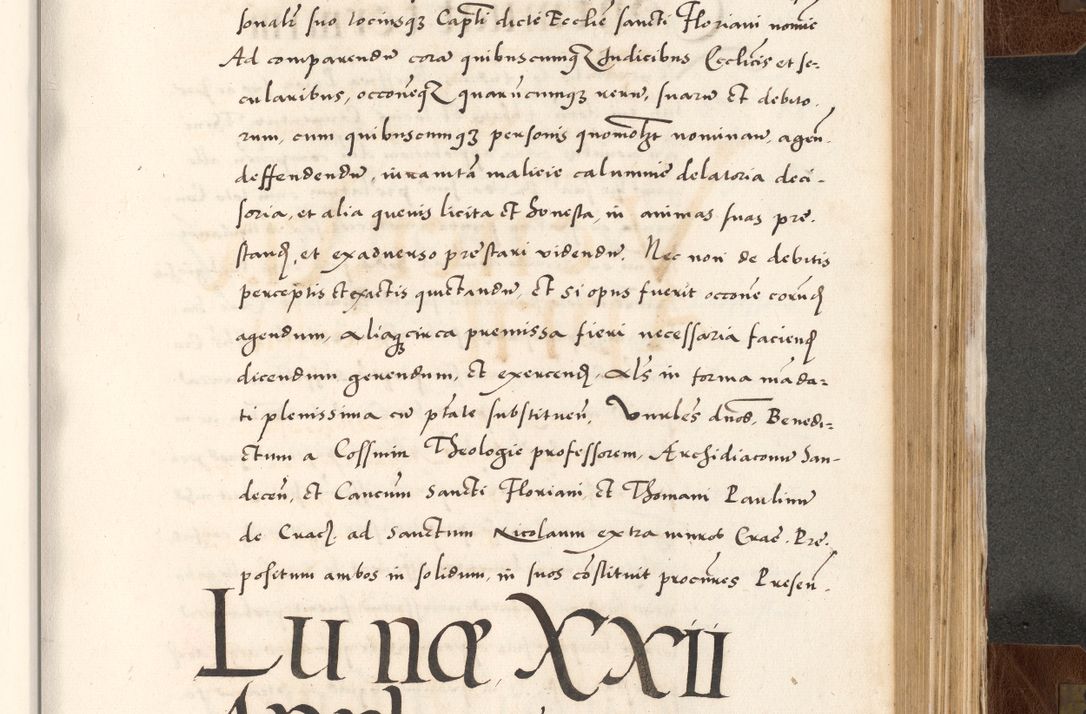 sonalr suo totiusqꝫ Capłi dicte Ecclie sancti Floriani nomie
Ad comparendū corā quibuscumqꝫ Iudicibus Ecclicis et se-
cularibus, occoneqꝫ quarūcumqꝫ rerū, suarū et debito.
rum, cum quibuscumqꝫ personis quomolꝫt nominan, agen.
deffendendū, malicie calumnie delatoria deci-
soria, et alia quevis licita et honesta, in animas suas pre.
stand, et exadverso prestari videndū. Nec non de debitis
perceptis et exactis quictandū, et si opus fuerit occone corūd
agendum, aliaqꝫ circa premissa fieri necessaria faciend
dicendum gerendum, et exercend, Als in forma māda-
ti plenissima cū ptate substituen, Unrbles dnos, Benedi-
ctum a Cossmin Theologie professorem, Archidiaconū San-
decen, et Cancum Sancti Floriani, et Thomam Paulinū
de Crac ad Sanctum Nicolaum extra muros Crac. Pre.
positum ambos in solidum, in suos cōstituit procures Presen.
Lunæ XXII
April